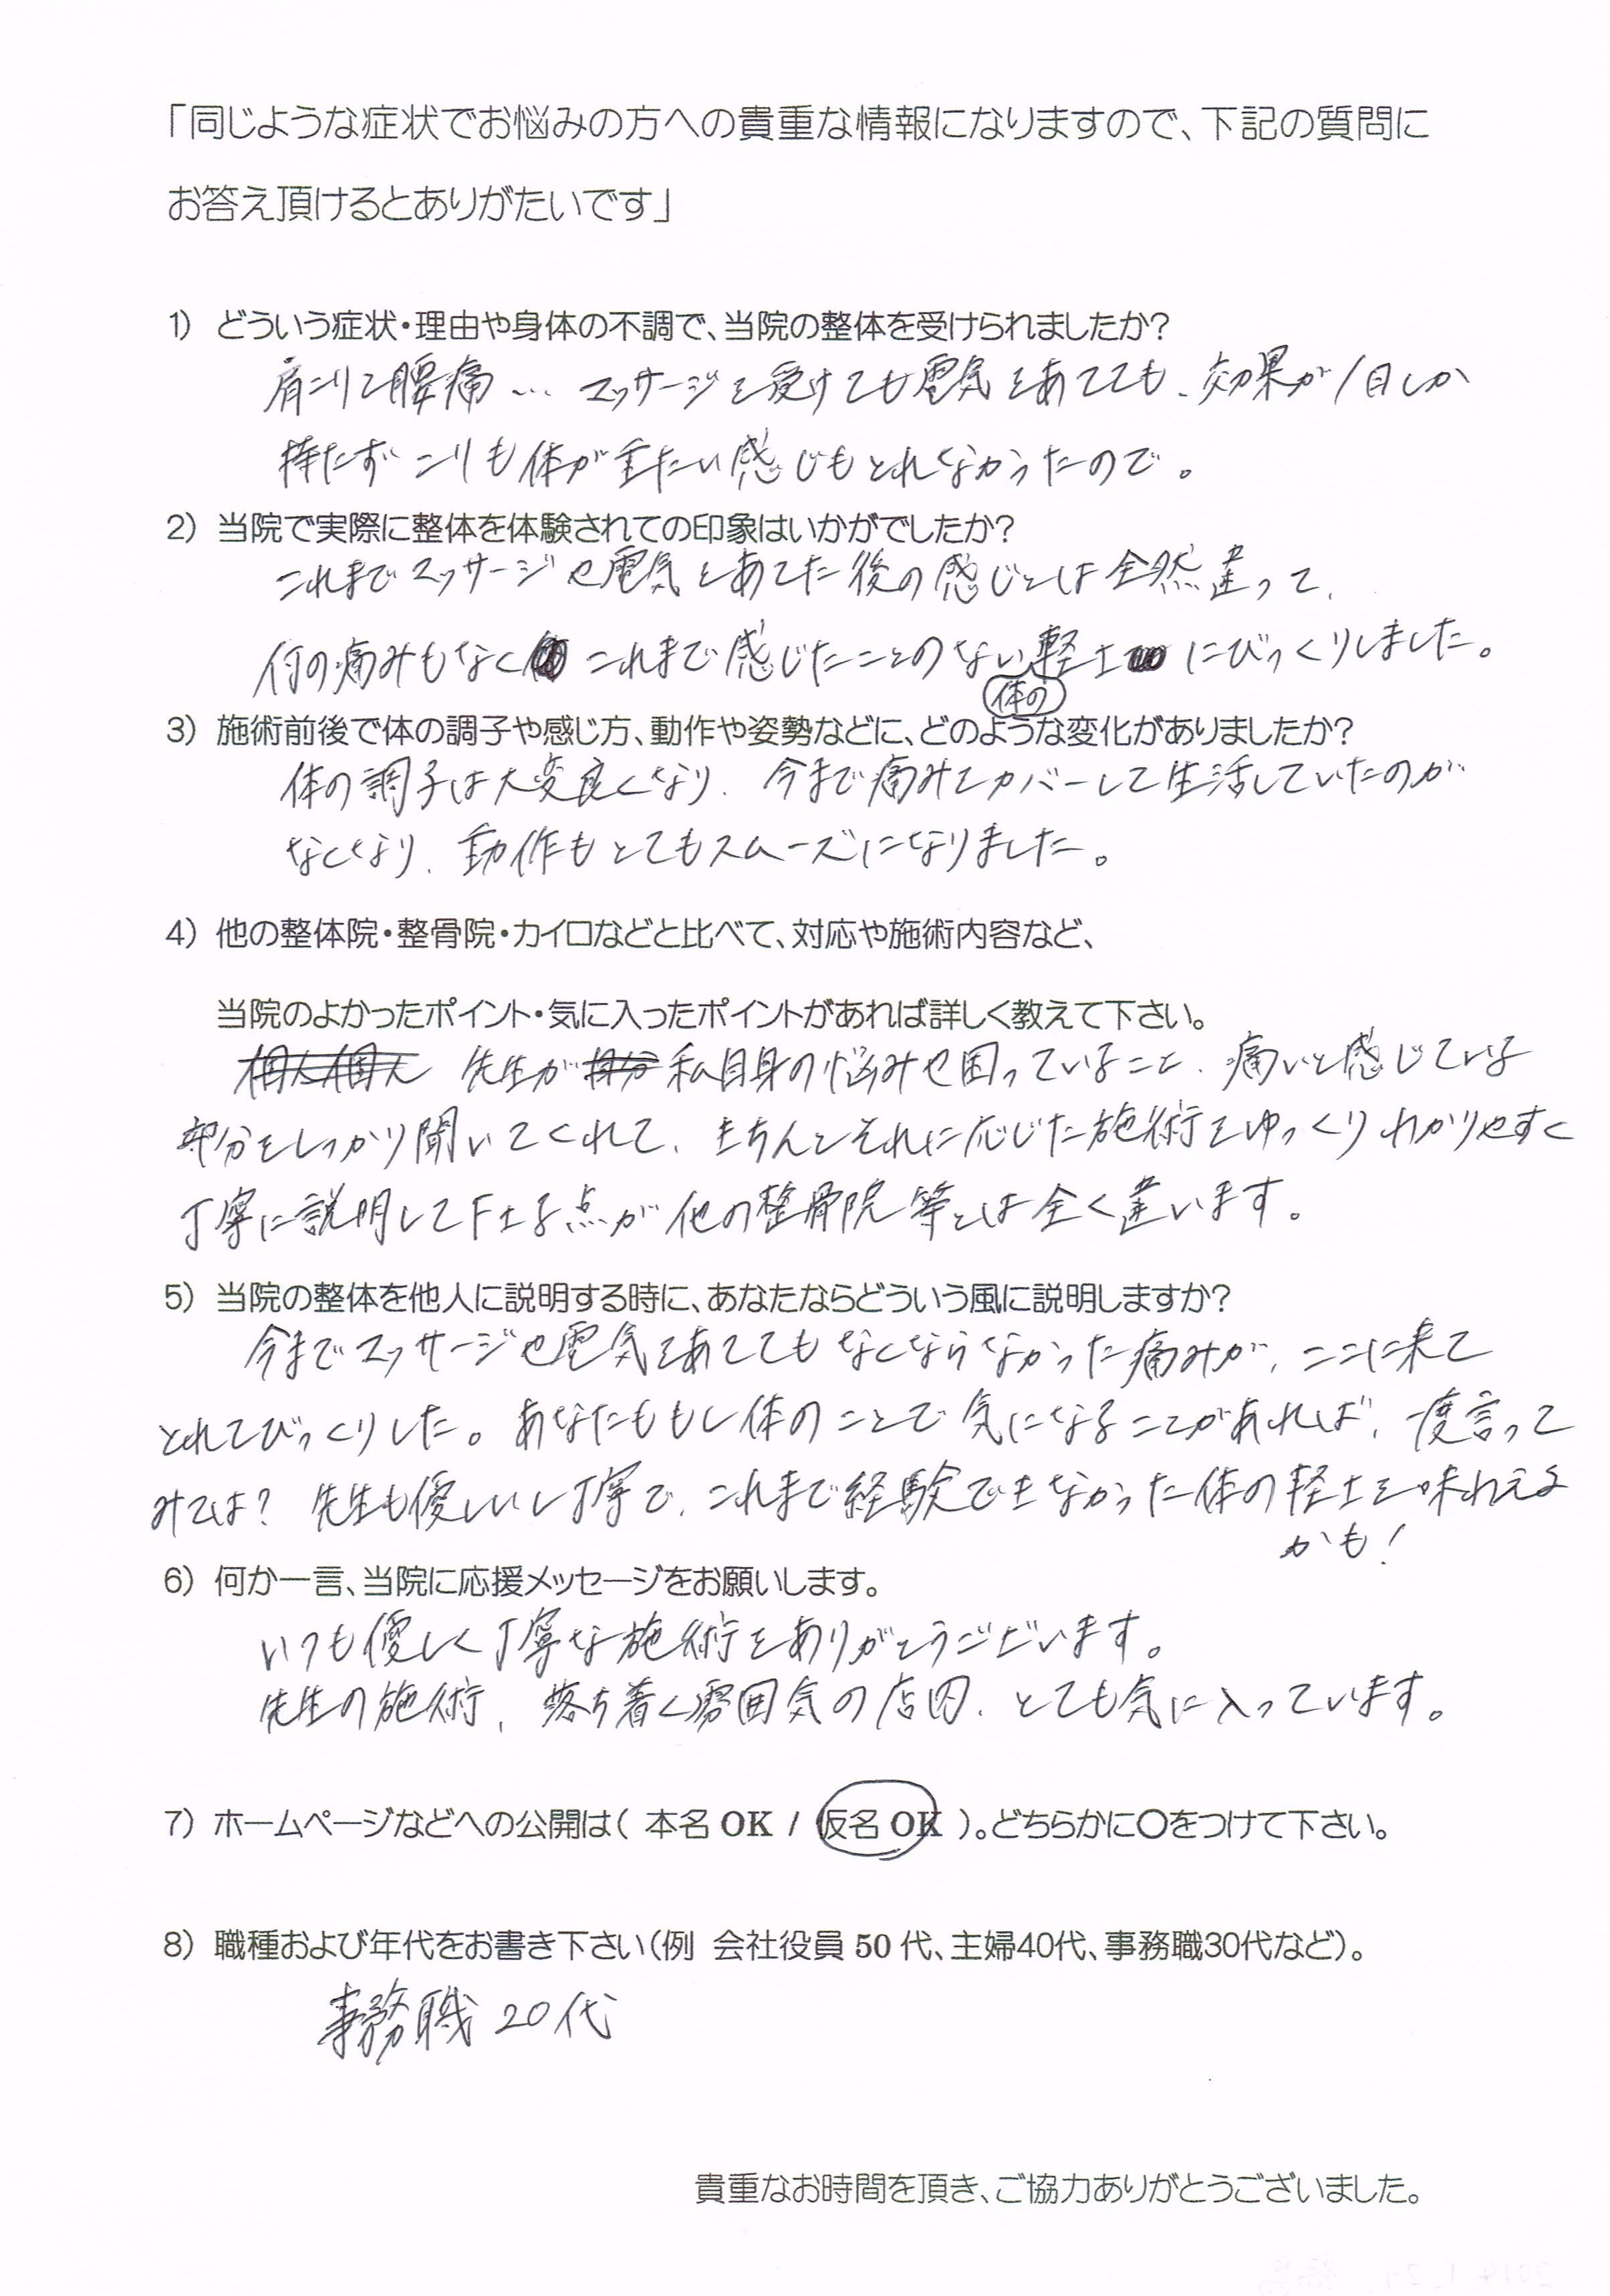 「同じような症状でお悩みの方への貴重な情報になりますので、下記の質問に
お答え頂けるとありがたいです」
1) どういう症状・理由や身体の不調で、当院の整体を受けられましたか?
肩こりと腰痛… マッサージを受けても電気をあてても、効果が1日しか
持たずこりも体が重たい感じもとれなかったので。
2) 当院で実際に整体を体験されての印象はいかがでしたか?
これまでマッサージや電気をあてた後の感じとは全然違って、
何の痛みもなく これまで感じたことのない軽さ にびっくりしました。
体の
3) 施術前後で体の調子や感じ方、動作や姿勢などに、どのような変化がありましたか?
体の調子は大変良くなり、今まで痛みをカバーして生活していたのが
なくなり、動作もとてもスムーズになりました。
4) 他の整体院・整骨院・カイロなどと比べて、対応や施術内容など、
当院のよかったポイント・気に入ったポイントがあれば詳しく教えて下さい。
先生が 私自身の悩みや困っていること、痛いと感じている
部分をしっかり聞いてくれて、きちんとそれに応じた施術をゆっくりわかりやすく
丁寧に説明して下さる点が他の整骨院等とは全く違います。
5) 当院の整体を他人に説明する時に、あなたならどういう風に説明しますか?
今までマッサージや電気をあててもなくならなかった痛みが、ここに来て
とれてびっくりした。あなたももし体のことで気になることがあれば、一度言って
みては? 先生も優しいし丁寧で、これまで経験できなかった体の軽さを味わえる
かも!
6) 何か一言、当院に応援メッセージをお願いします。
いつも優しく丁寧な施術をありがとうございます。
先生の施術、落ち着く雰囲気の店内、とても気に入っています。
7) ホームページなどへの公開は( 本名 OK / 仮名 OK )。どちらかに○をつけて下さい。
8) 職種および年代をお書き下さい(例 会社役員 50 代、主婦40代、事務職30代など)。
事務職 20代
貴重なお時間を頂き、ご協力ありがとうございました。